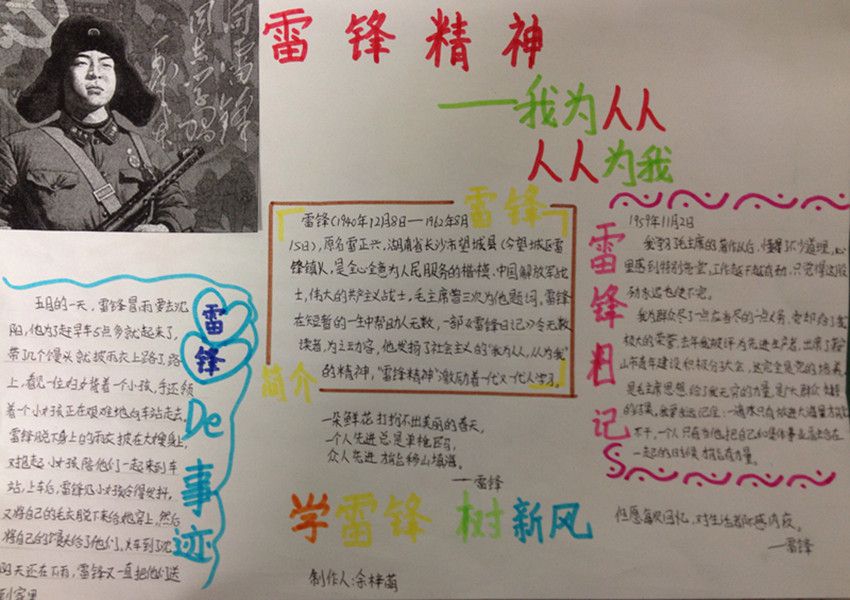 向雷锋
同志学习
毛泽东
雷锋精神
——我为人人
人人为我
雷锋
简介
雷锋(1940年12月18日—1962年8月
15日),原名雷正兴,湖南省长沙市望城县(今望城区雷
锋镇)人,是全心全意为人民服务的楷模,中国解放军战
士,伟大的共产主义战士,毛主席曾三次为他题词,雷锋
在短暂的一生中帮助人无数,一部《雷锋日记》令无数
读者为之动容,他发扬了社会主义的“我为人人,人人为我”
的精神,“雷锋精神”激励着一代又一代人学习。
一朵鲜花打扮不出美丽的春天,
个人先进总是单枪匹马,
众人先进才能移山填海。
——雷锋
雷锋De事迹
五月的一天,雷锋冒雨要去沈
阳,他为了赶早车5点多就起来了,
带几个馒头就披雨衣上路了,路
上,看见一位妇女背着一个小孩,手还领
着一个小女孩正在艰难地向车站走去,
雷锋脱下身上的雨衣披在大嫂身上,
又抱起小女孩陪他们一起来到车
站,上车后,雷锋见小女孩冷得发抖,
又将自己的毛衣脱下来给她穿上,然后
将自己的馒头给了他们,火车到了沈
阳天还在下雨,雷锋又一直把他们送
到家里
雷锋日记
1959年11月2日
我学习毛主席的著作以后,懂得了不少道理,心
里感到特别告堂,工作越干越有劲,只觉得这股
劲永远也使不完。
我为群众尽了一点应当尽的一点义务,党却给了我
极大的荣誉,去年我被评为先进生产者,出席了鞍
山市青年建设积极分子大会,这完全是党的培养,
是毛主席思想给了我无穷的力量,是广大群众支持
的结果,我要永远记住:一滴水只有放进大海里才能
不干,一个人只有当他把自己和集体事业融合在
一起的时候才能有力量。
但愿每次回忆,对生活都不感内疚。
——雷锋
学雷锋 树新风
制作人:余梓菡